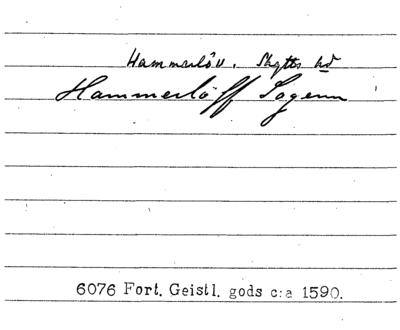 Hammarlöv. Skytts hd
Hammerlöff Sogenn
6076 Fort. Geistl. gods c:a 1590.